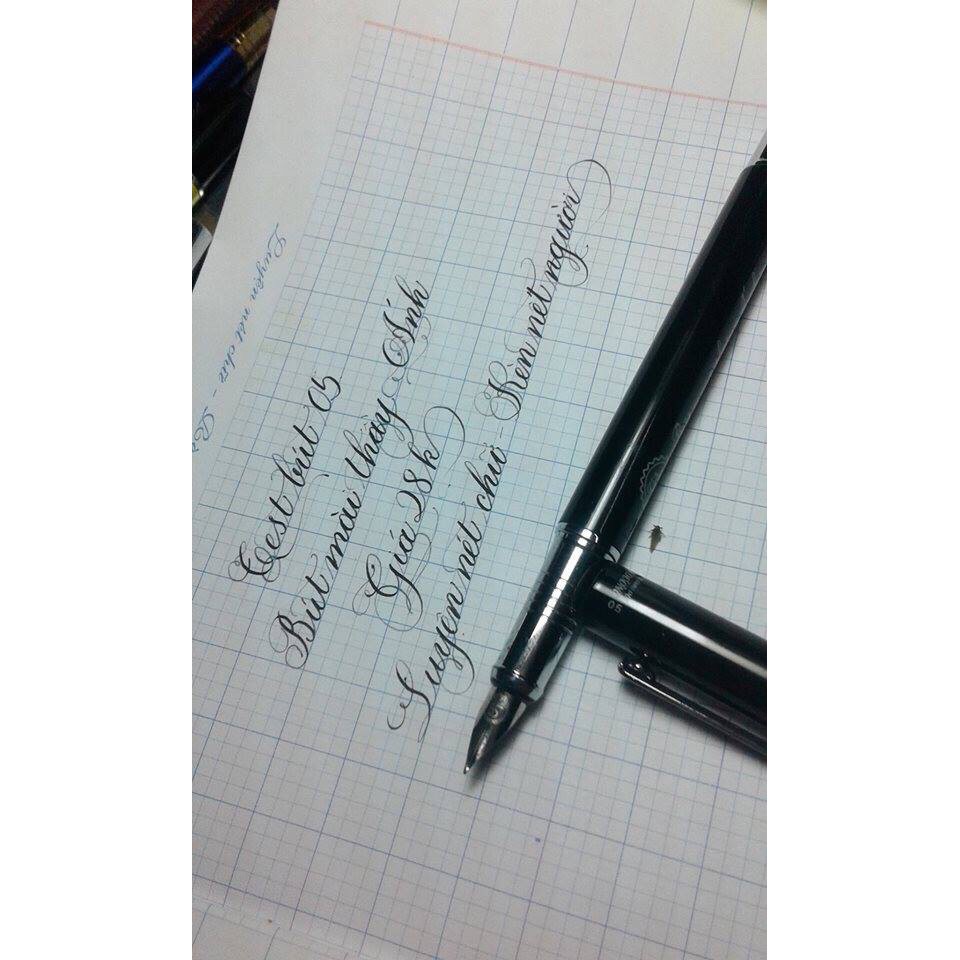 Test bút 05
Bút mài thầy Ánh
Giá 28k
Luyện nét chữ - Rèn nết người
Luyện nét chữ -
05